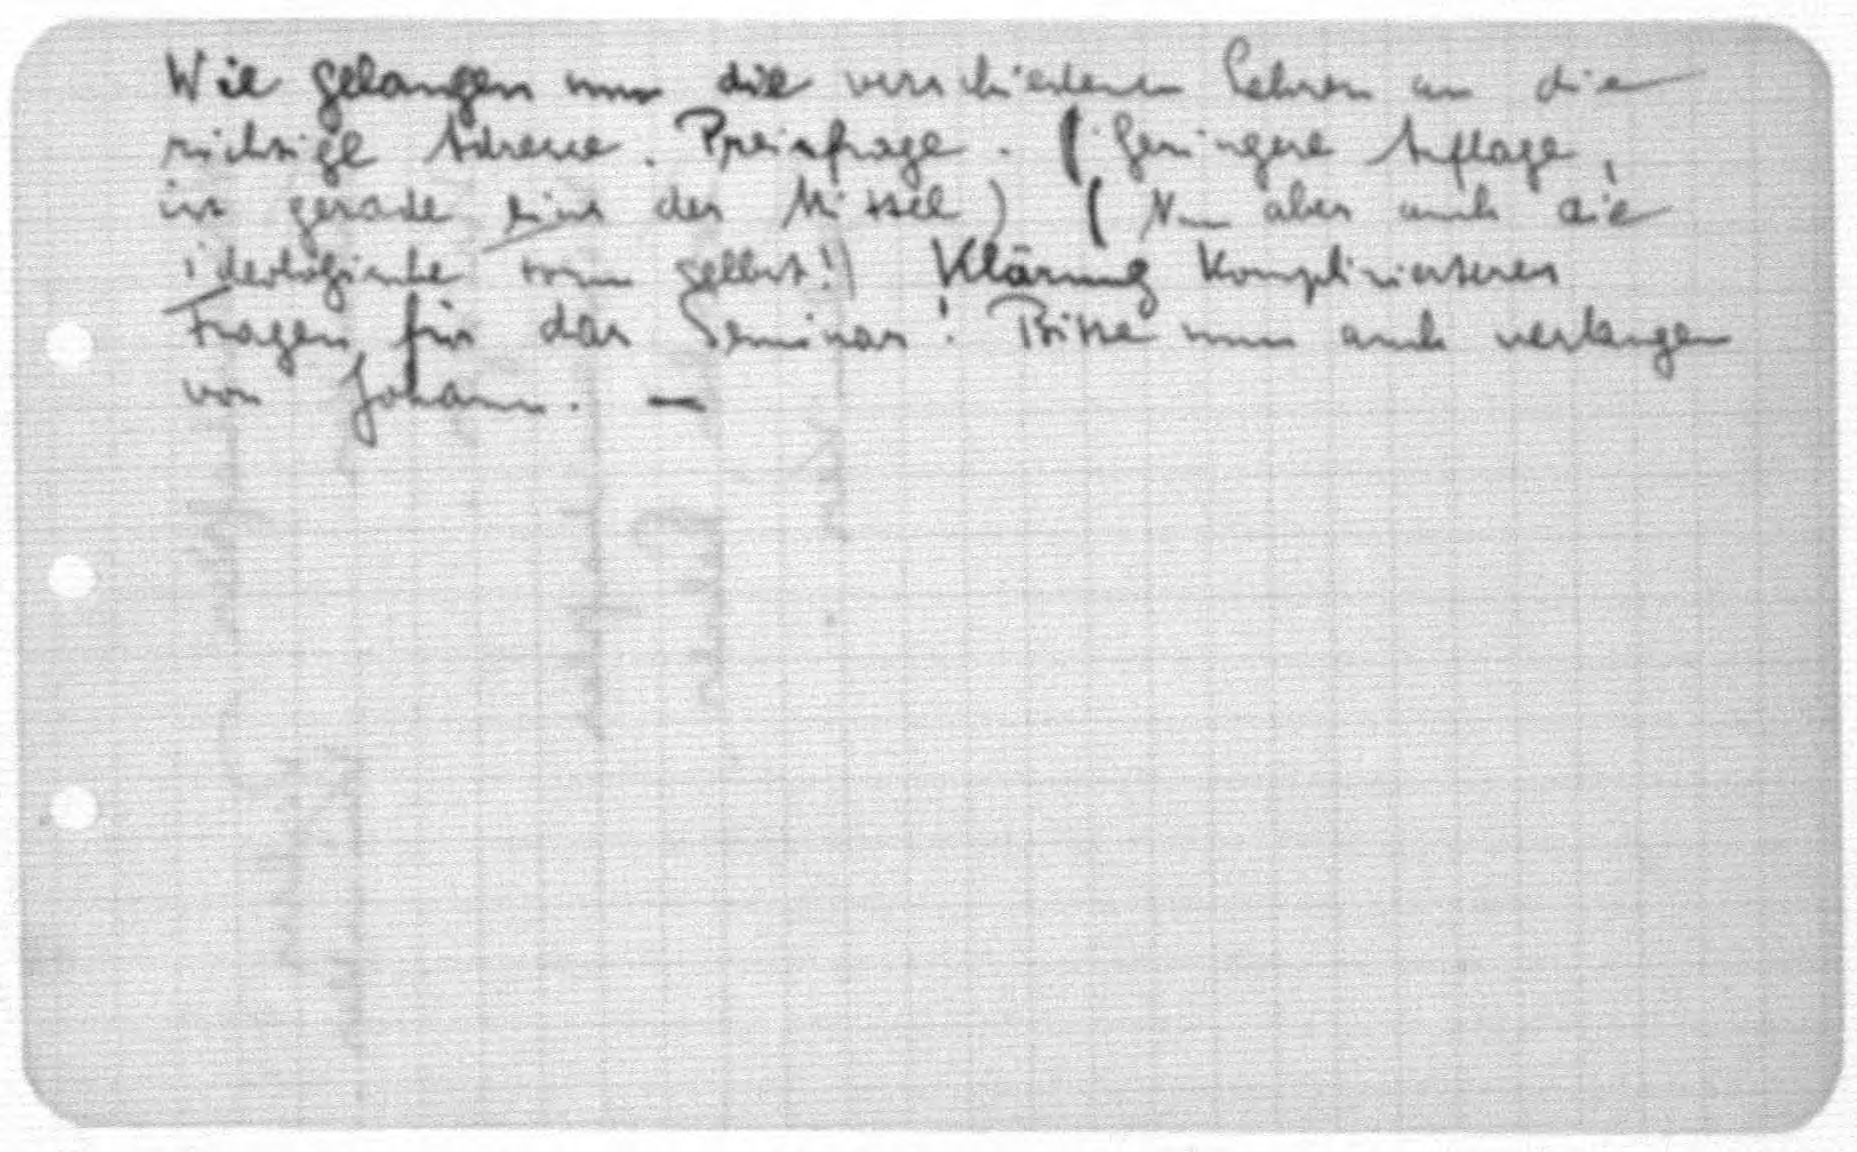 Wie gelangen nun die verschiedenen Lehren an die
richtige Adresse. Preisfrage. (Geringere Auflage,
ist gerade eins der Mittel) (Nun aber auch die
ideologische vom selbst!) Klärung komplizierterer
Fragen für das Seminar! Bitte nun auch verlangen
von Johann. —